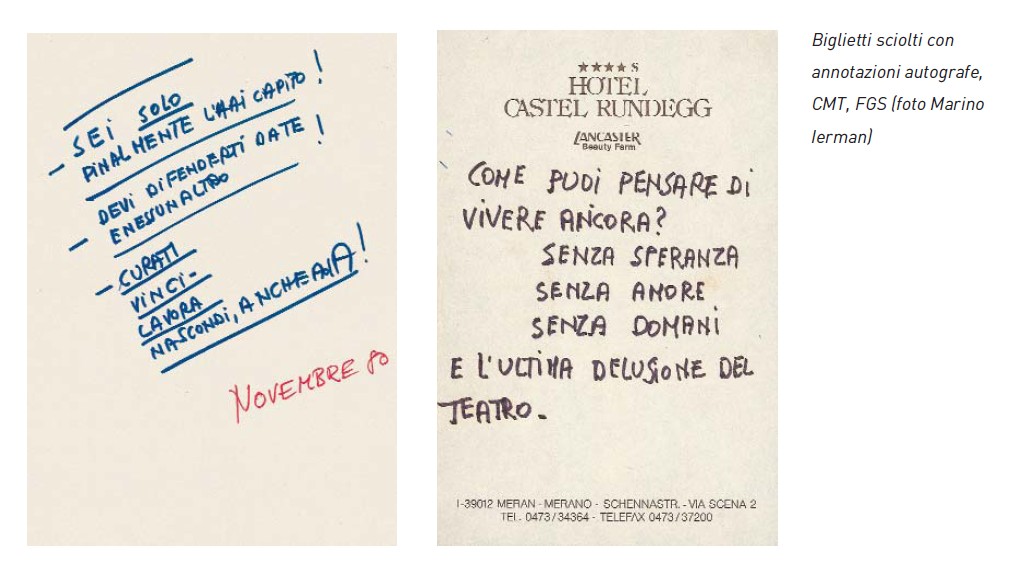 SEI SOLO
– FINALMENTE L'HAI CAPITO!
DEVI DIFENDERTI DA TE!
– E NESSUN ALTRO
– CURATI
VINCI-
LAVORA
NASCONDI, ANCHE A
NOVEMBRE 80
★★★★ S
HOTEL
CASTEL RUNDEGG
LANCASTER
Beauty Farm
COME PUOI PENSARE DI
VIVERE ANCORA?
SENZA SPERANZA
SENZA AMORE
SENZA DOMANI
E L'ULTIMA DELUSIONE DEL
TEATRO-
I-39012 MERAN - MERANO - SCHENNASTR. - VIA SCENA 2
TEL. 0473/34364 - TELEFAX 0473/37200
Biglietti sciolti con
annotazioni autografe,
CMT, FGS (foto Marino
Ierman)